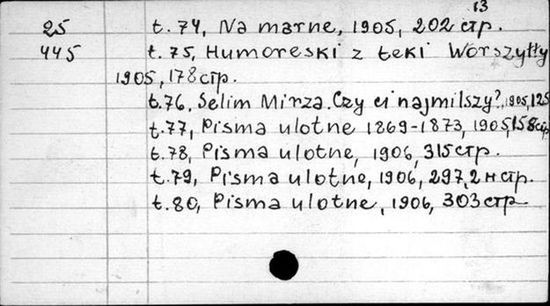 13
25 t. 74, Na marne, 1905, 202 стр.
445 t. 75, Humoreski z teki Worszyłły
1905, 178 стр.
t. 76, Selim Mirza. Czy ci najmilszy?, 1905, 125
t. 77, Pisma ulotne 1869-1873, 1905, 158 стр.
t. 78, Pisma ulotne, 1906, 315 стр.
t. 79, Pisma ulotne, 1906, 297, 2 н стр.
t. 80, Pisma ulotne, 1906, 303 стр.